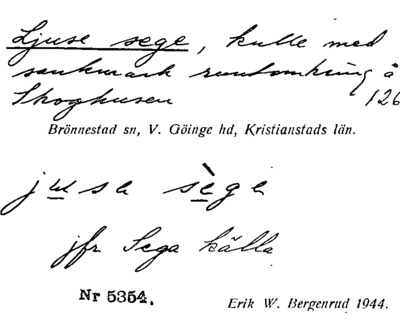 Ljuse sege, kulle med
sankmark runtomkring å
Skoghusen 126
Brönnestad sn, V. Göinge hd, Kristianstads län.
jusa sège
jfr Sega källa
Nr 5354.
Erik W. Bergenrud 1944.